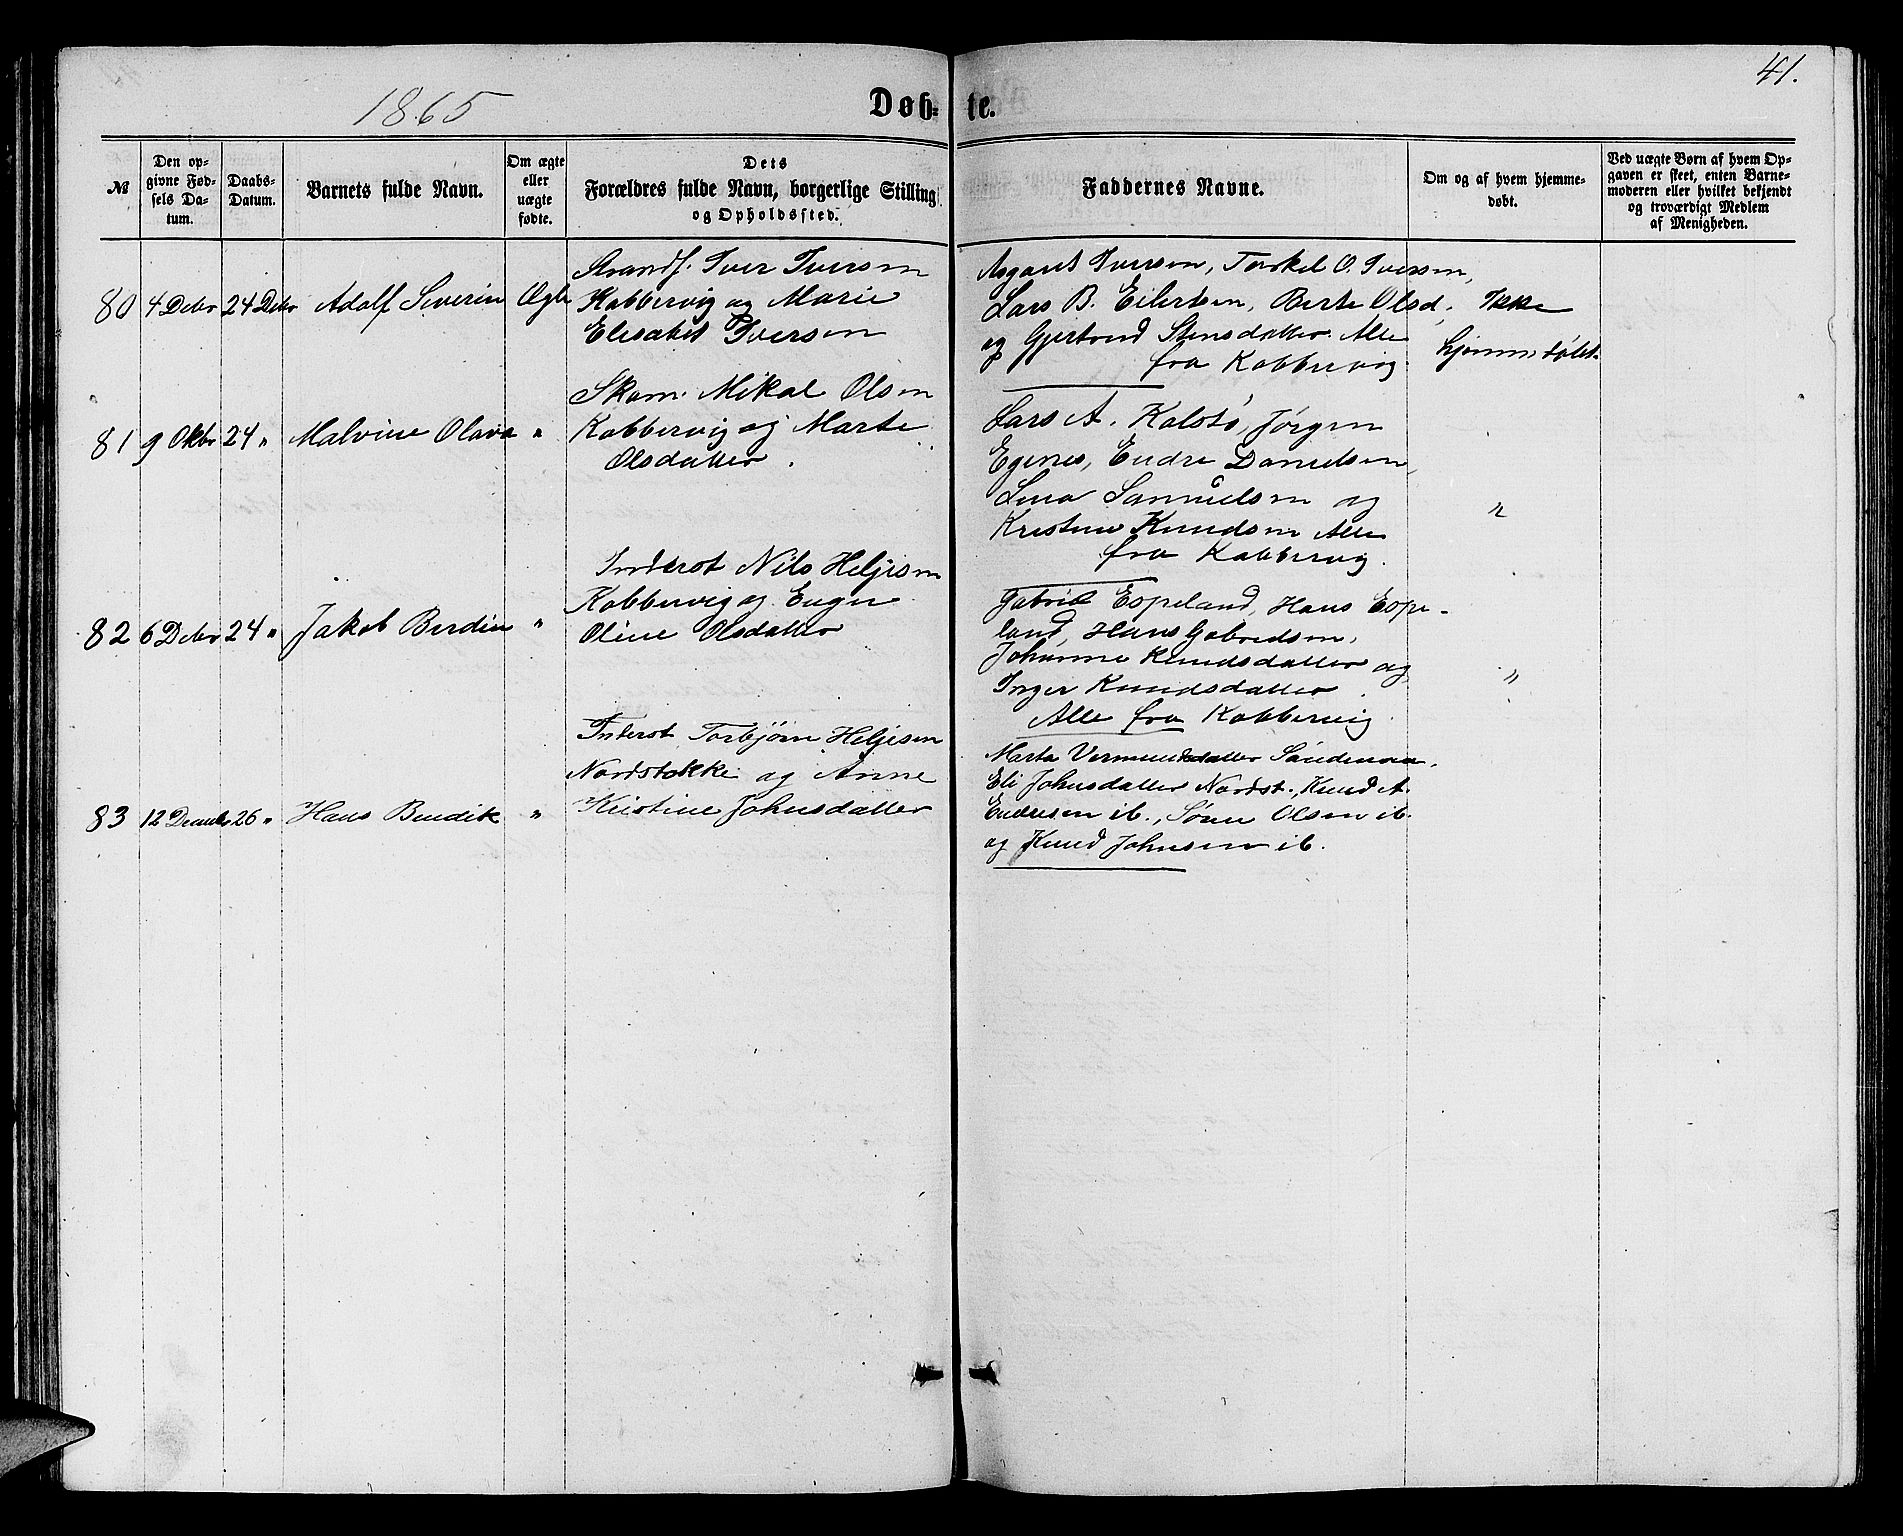 41.
1865
Døb- te.
№
Den op-
givne Fød-
sels Da-
tum.
Daabs-
Datum.
Barnets fulde Navn.
Om ægte
eller
uægte
fødte.
Dets
Forældres fulde Navn, borgerlige Stilling
og Opholdssted.
Faddernes Navne.
Om og af hvem hjemme-
døbt.
Ved uægte Børn af hvem Op-
gaven er skeet, enten Barne-
moderen eller hvilket bekjendt
og troværdigt Medlem
af Menigheden.
80 4 Debr 24 Debr Adolf Severin Ægte
Strands. Iver Iversen
Kobbervig og Marie
Elisabet Iversen
Asgaut Iversen, Torkel O. Iversen,
Lars B. Eilertsen, Berte Olsd.
og Gjertrud Stensdatter. Alle
fra Kobbervig.
Ikke
hjemmedøbt.
81 9 Oktbr 24 " Malvine Olava "
Skom. Mikal Olsen
Kobbervig og Marte
Olsdatter.
Lars A. Kolstø, Jørgen
Egenes, Endre Danielsen,
Lina Samuelsen og
Kristine Knudsen Alle
fra Kobbervig.
"
82 6 Debr 24 " Jakob Berdin "
Inderst Nils Heljesen
Kobbervig og Inger
Oline Olsdatter
Gabriel Espeland, Hans Espe-
land, Hans Gabrielsen,
Johanne Knudsdatter og
Inger Knudsdatter.
Alle fra Kobbervig.
"
83 12 Decembr 26 " Hans Bendik "
Inderst Torbjørn Heljesen
Nordstokke og Anne
Kristine Johnsdatter
Marta Vermundsdatter
Eli Johnsdatter Nordst., Knud A.
Endresen ib., Søren Olsen ib.
og Knud Johnsen ib.